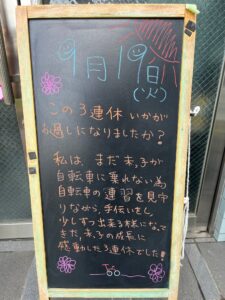 9月19日
(火)
この3連休 いかがが
お過しになりましたか?
私は、まだ末っ子が
自転車に乗れない為
自転車の練習を見守
りながら、手伝いをし
少しずつ出来る様になって
きた、末っ子の成長に
感動した3連休でした!